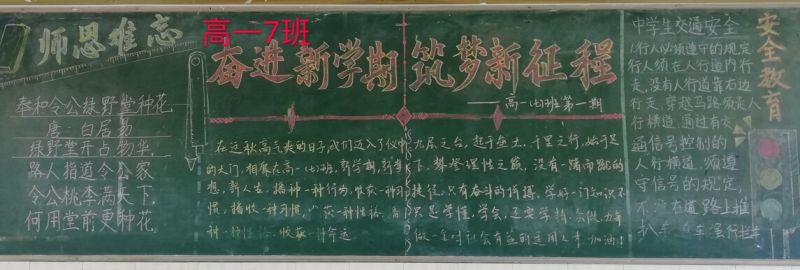 师恩难忘
奉和令公绿野堂种花
唐·白居易
绿野堂开占物华
路人指道令公家
令公桃李满天下
何用堂前更种花
高一7班
奋进新学期 筑梦新征程
——高一(七)班第一期
在这秋高气爽的日子,我们迈入了
的大门,相聚在高一(七)班,新学期,新
想,新人生,播种一种行为,收获一种习
惯,播收一种习惯,收获一种性格,播
种一种性格,收获一种命运
九层之台,起于垒土,千里之行,始于足
下,攀登理性之巅,没有一蹴而就的
捷径,只有奋斗的拼搏,学好一门知识不
只是学懂,学会,还要学精,会做,力争
做一名对社会有益的适用人才,加油!
安全教育
中学生交通安全
1.行人必须遵守的规定
行人须在人行道内行
走,没有人行道靠右边
行走,穿越马路须走人
行横道,通过有交
通信号控制的
人行横道,须遵
守信号的规定,
不准在道路上推
扒车,